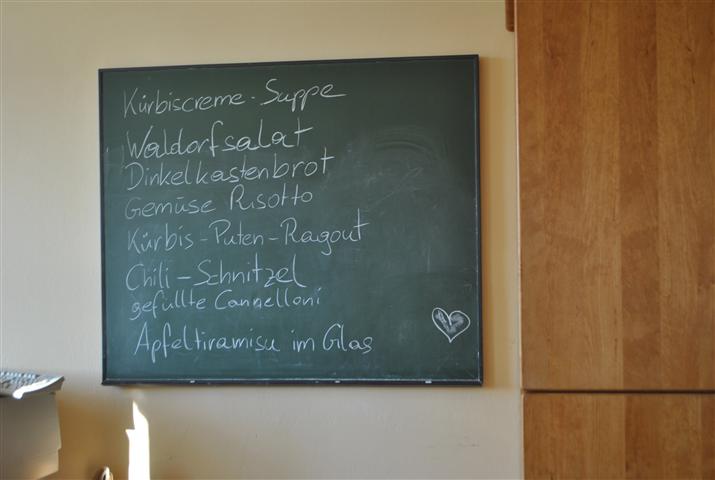 Kürbiscreme-Suppe
Waldorfsalat
Dinkelkastenbrot
Gemüse Risotto
Kürbis-Puten-Ragout
Chili-Schnitzel
gefüllte Cannelloni
Apfeltiramisu im Glas